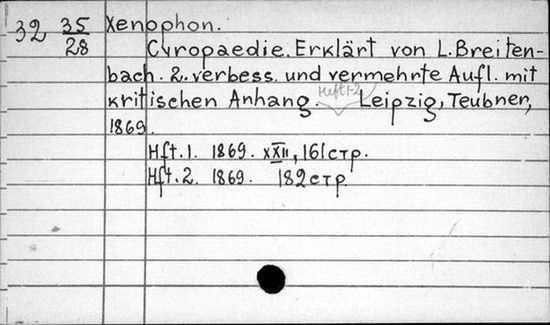 32 35/28 Xenophon.
Cyropaedie. Erklärt von L. Breiten-
bach. 2. verbess. und vermehrte Aufl. mit
kritischen Anhang. Heft 1-2 Leipzig, Teubner,
1869.
Hft. 1. 1869. XXII, 161 стр.
Hft. 2. 1869. 182 стр.